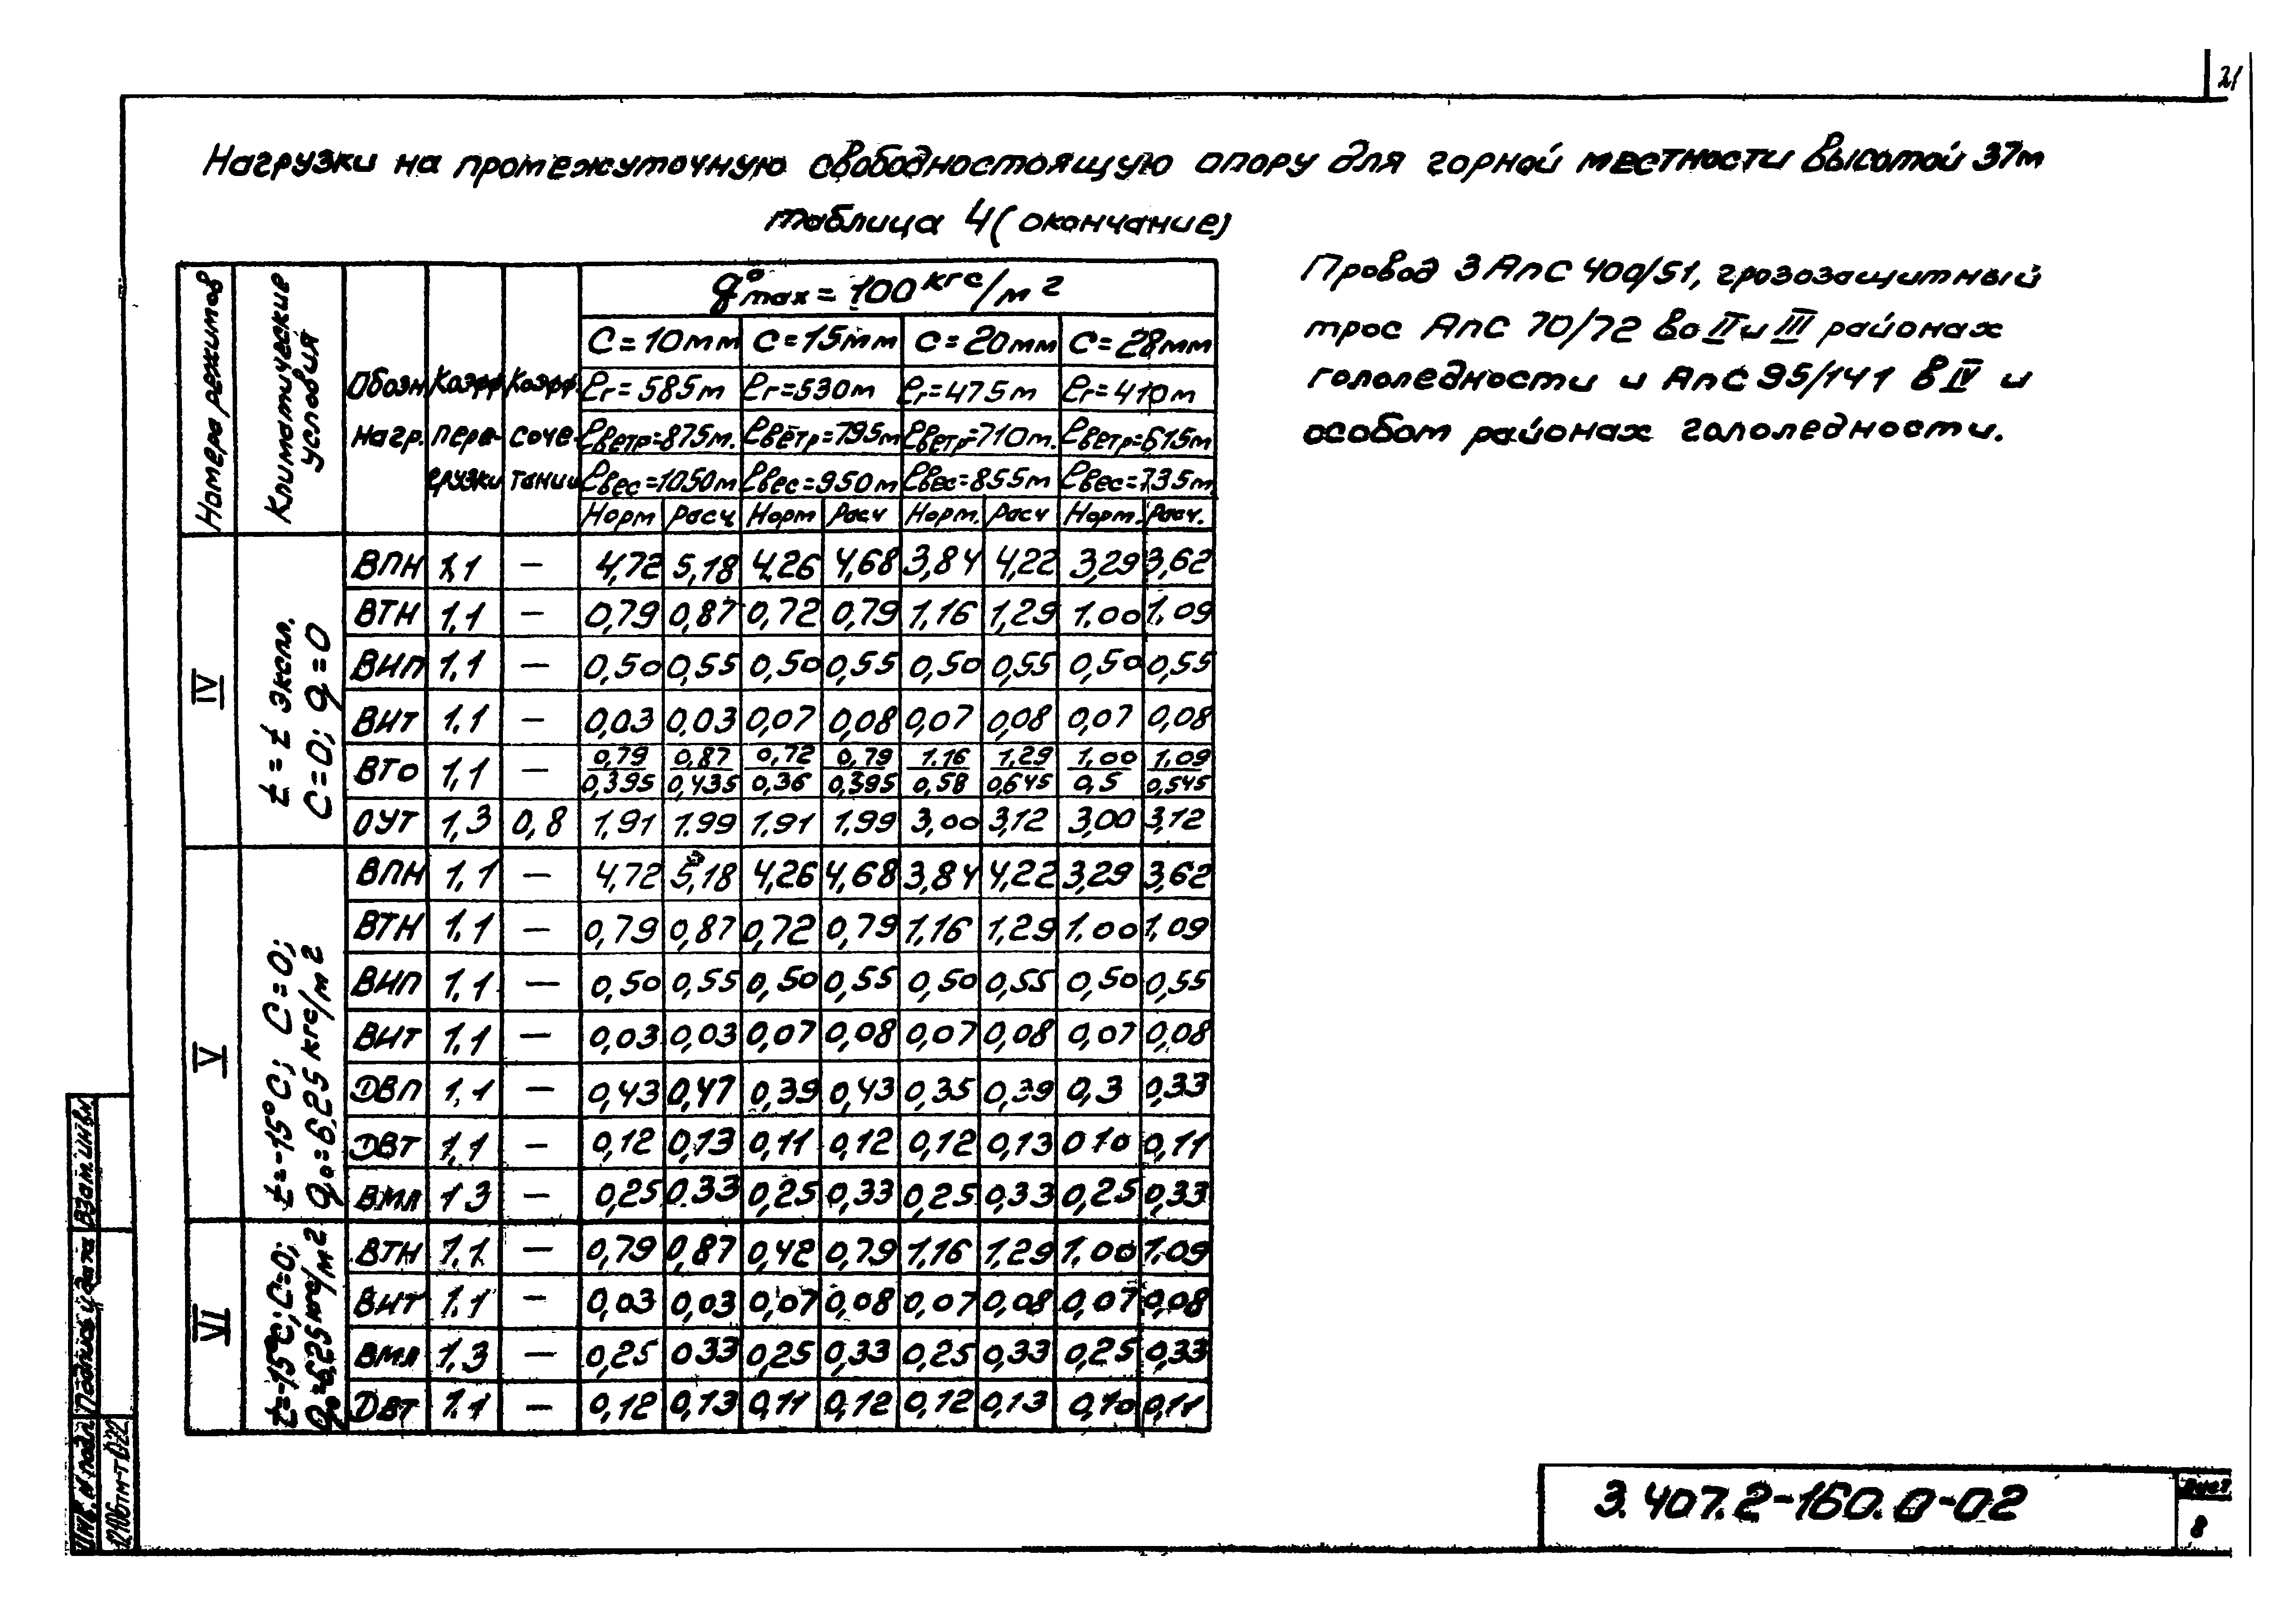 21
Нагрузки на промежуточную свободностоящую опору для горной местности высотой 37м
Таблица 4 (окончание)
Провод 3 АпС 400/51, грозозащитный
трос АпС 70/72 во II и III районах
гололедности и АпС 95/141 в IV и
особом районах гололедности.
Номера режимов
Климатические условия
Обозн. нагр.
Коэфф. пере- грузки
Коэфф. соче- таний
q°max = 100 кгс/м²
C = 10мм C = 15мм C = 20мм C = 28мм
ℓг = 585м ℓг = 530м ℓг = 475м ℓг = 410м
ℓветр = 875м. ℓветр = 795м ℓветр = 710м. ℓветр = 615м
ℓвес = 1050м ℓвес = 950м ℓвес = 855м ℓвес = 735м
Норм Расч. Норм Расч Норм. Расч Норм. Расч.
IV
t = t экспл.
C = 0; q = 0
ВПН 1,1 — 4,72 5,18 4,26 4,68 3,84 4,22 3,29 3,62
ВТН 1,1 — 0,79 0,87 0,72 0,79 1,16 1,29 1.00 1,09
ВИП 1,1 — 0,50 0,55 0,50 0,55 0,50 0,55 0,50 0,55
ВИТ 1.1 — 0,03 0,03 0,07 0,08 0,07 0,08 0,07 0,08
ВТО 1,1 — 0,79/0,395 0,87/0,435 0,72/0,36 0,79/0,395 1.16/0,58 1,29/0,645 1,00/0,5 1,09/0,545
ОУТ 1,3 0,8 1,91 1.99 1.91 1.99 3,00 3,12 3,00 3,12
V
t = -15°С; C = 0;
q₀ = 6,25 кгс/м²
ВПН 1,1 — 4,72 5,18 4,26 4,68 3,84 4,22 3,29 3,62
ВТН 1.1 — 0,79 0,87 0,72 0,79 1,16 1,29 1.00 1,09
ВИП 1.1 — 0,50 0,55 0,50 0,55 0,50 0,55 0,50 0,55
ВИТ 1.1 — 0,03 0,03 0,07 0,08 0,07 0,08 0,07 0,08
ДВП 1,1 — 0,43 0,47 0,39 0,43 0,35 0,39 0,3 0,33
ДВТ 1,1 — 0,12 0,13 0,11 0,12 0,12 0,13 0 10 0,11
ВМЛ 1 3 — 0,25 0.33 0,25 0,33 0,25 0,33 0,25 0,33
VI
t = -15°С; C = 0;
q₀ = 6,25 кгс/м²
ВТН 1,1 — 0,79 0,87 0,42 0,79 1,16 1,29 1.00 1.09
ВИТ 1.1 — 0,03 0,03 0,07 0,08 0,07 0,08 0,07 0,08
ВМЛ 1,3 — 0,25 0 33 0,25 0,33 0,25 0,33 0,25 0,33
ДВТ 1.1 — 0,12 0,13 0,11 0,12 0,12 0,13 0,10 0,11
Взам. инв. №
Подпись и дата
Инв. № подл.
3.407.2-160.0-02
Лист
8